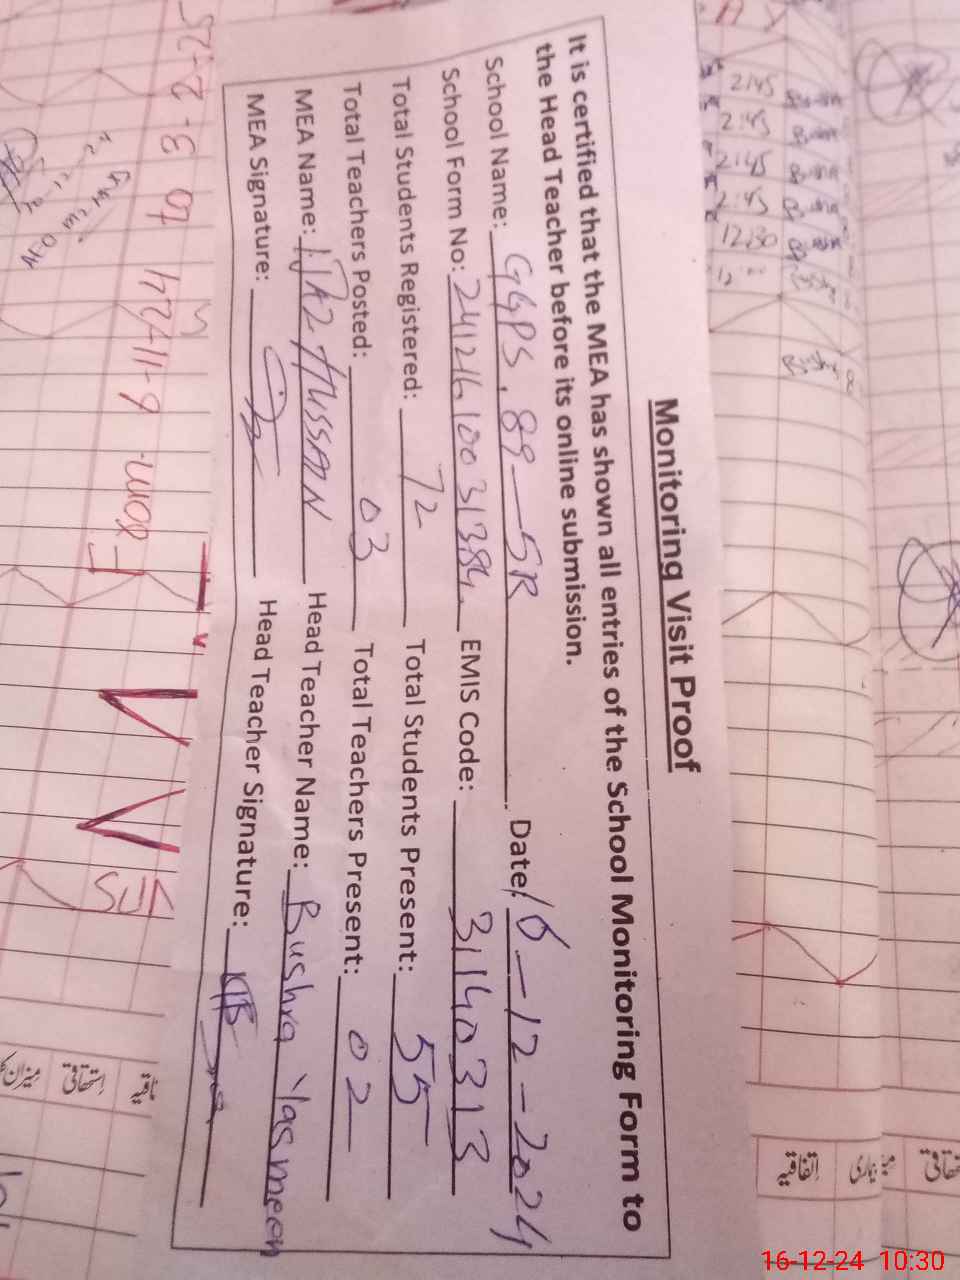 Monitoring Visit Proof
It is certified that the MEA has shown all entries of the School Monitoring Form to
the Head Teacher before its online submission.
School Name: GGPS, 89-5R Date: 16-12-2024
School Form No: 24121610031384 EMIS Code: 31140313
Total Students Registered: 72 Total Students Present: 55
Total Teachers Posted: 03 Total Teachers Present: 02
MEA Name: IJAZ HUSSAN Head Teacher Name: Bushra Yasmeen
MEA Signature: Head Teacher Signature:
2:45
2:45
2:45
2:45
12:30
اتفاقیہ
بیماری
استحقاقی
میزان
From 6-11-24 to 3-2-25
16-12-24 10:30